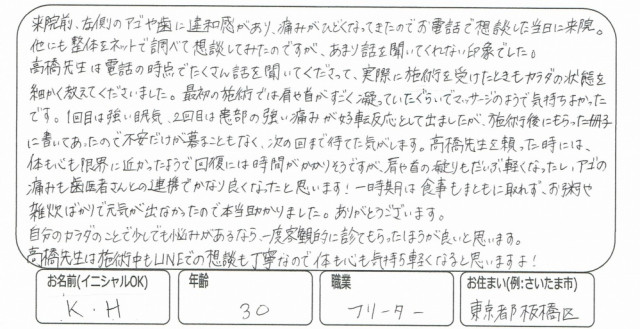 来院前、左側のアゴや歯に違和感があり、痛みがひどくなってきたのでお電話で想談した当日に来院。
他にも整体をネットで調べて想談してみたのですが、あまり話を聞いてくれない印象でした。
高橋先生は電話の時点でたくさん話を聞いてくださって、実際に施術を受けたときもカラダの状態を
細かく教えてくださいました。最初の施術では肩や首がすごく凝っていたぐらいでマッサージのようで気持ちよかった
です。1回目は強い眠気、2回目は患部の強い痛みが好転反応として出ましたが、施術後にもらった冊子
に書いてあったので不安だけが募ることもなく、次の回まで待てた気がします。高橋先生を頼った時には、
体も心も限界に近かったようで回復には時間がかかりそうですが、肩や首の凝りもだいぶ軽くなったし、アゴの
痛みも歯医者さんとの連携でかなり良くなったと思います!一時期は食事もまともに取れず、お粥や
雑炊ばかりで元気が出なかったので本当助かりました。ありがとうございます。
自分のカラダのことで少しでも悩みがあるなら、一度客観的に診てもらったほうが良いと思います。
高橋先生は施術中もLINEでの想談も丁寧なので体も心も気持ち軽くなると思いますよ!
お名前(イニシャルOK) 年齢 職業 お住まい(例:さいたま市)
K・H 30 フリーター 東京都板橋区